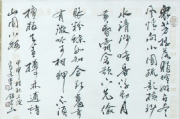 衆芳摇落獨暄妍占盡
風情向小園疏影横斜
水清淺暗香浮動月
黄昏霜禽欲下先偷
眼粉蝶如知合断魂幸
有微吟可相狎不須
檀板共金樽 林逋詩
山園小梅